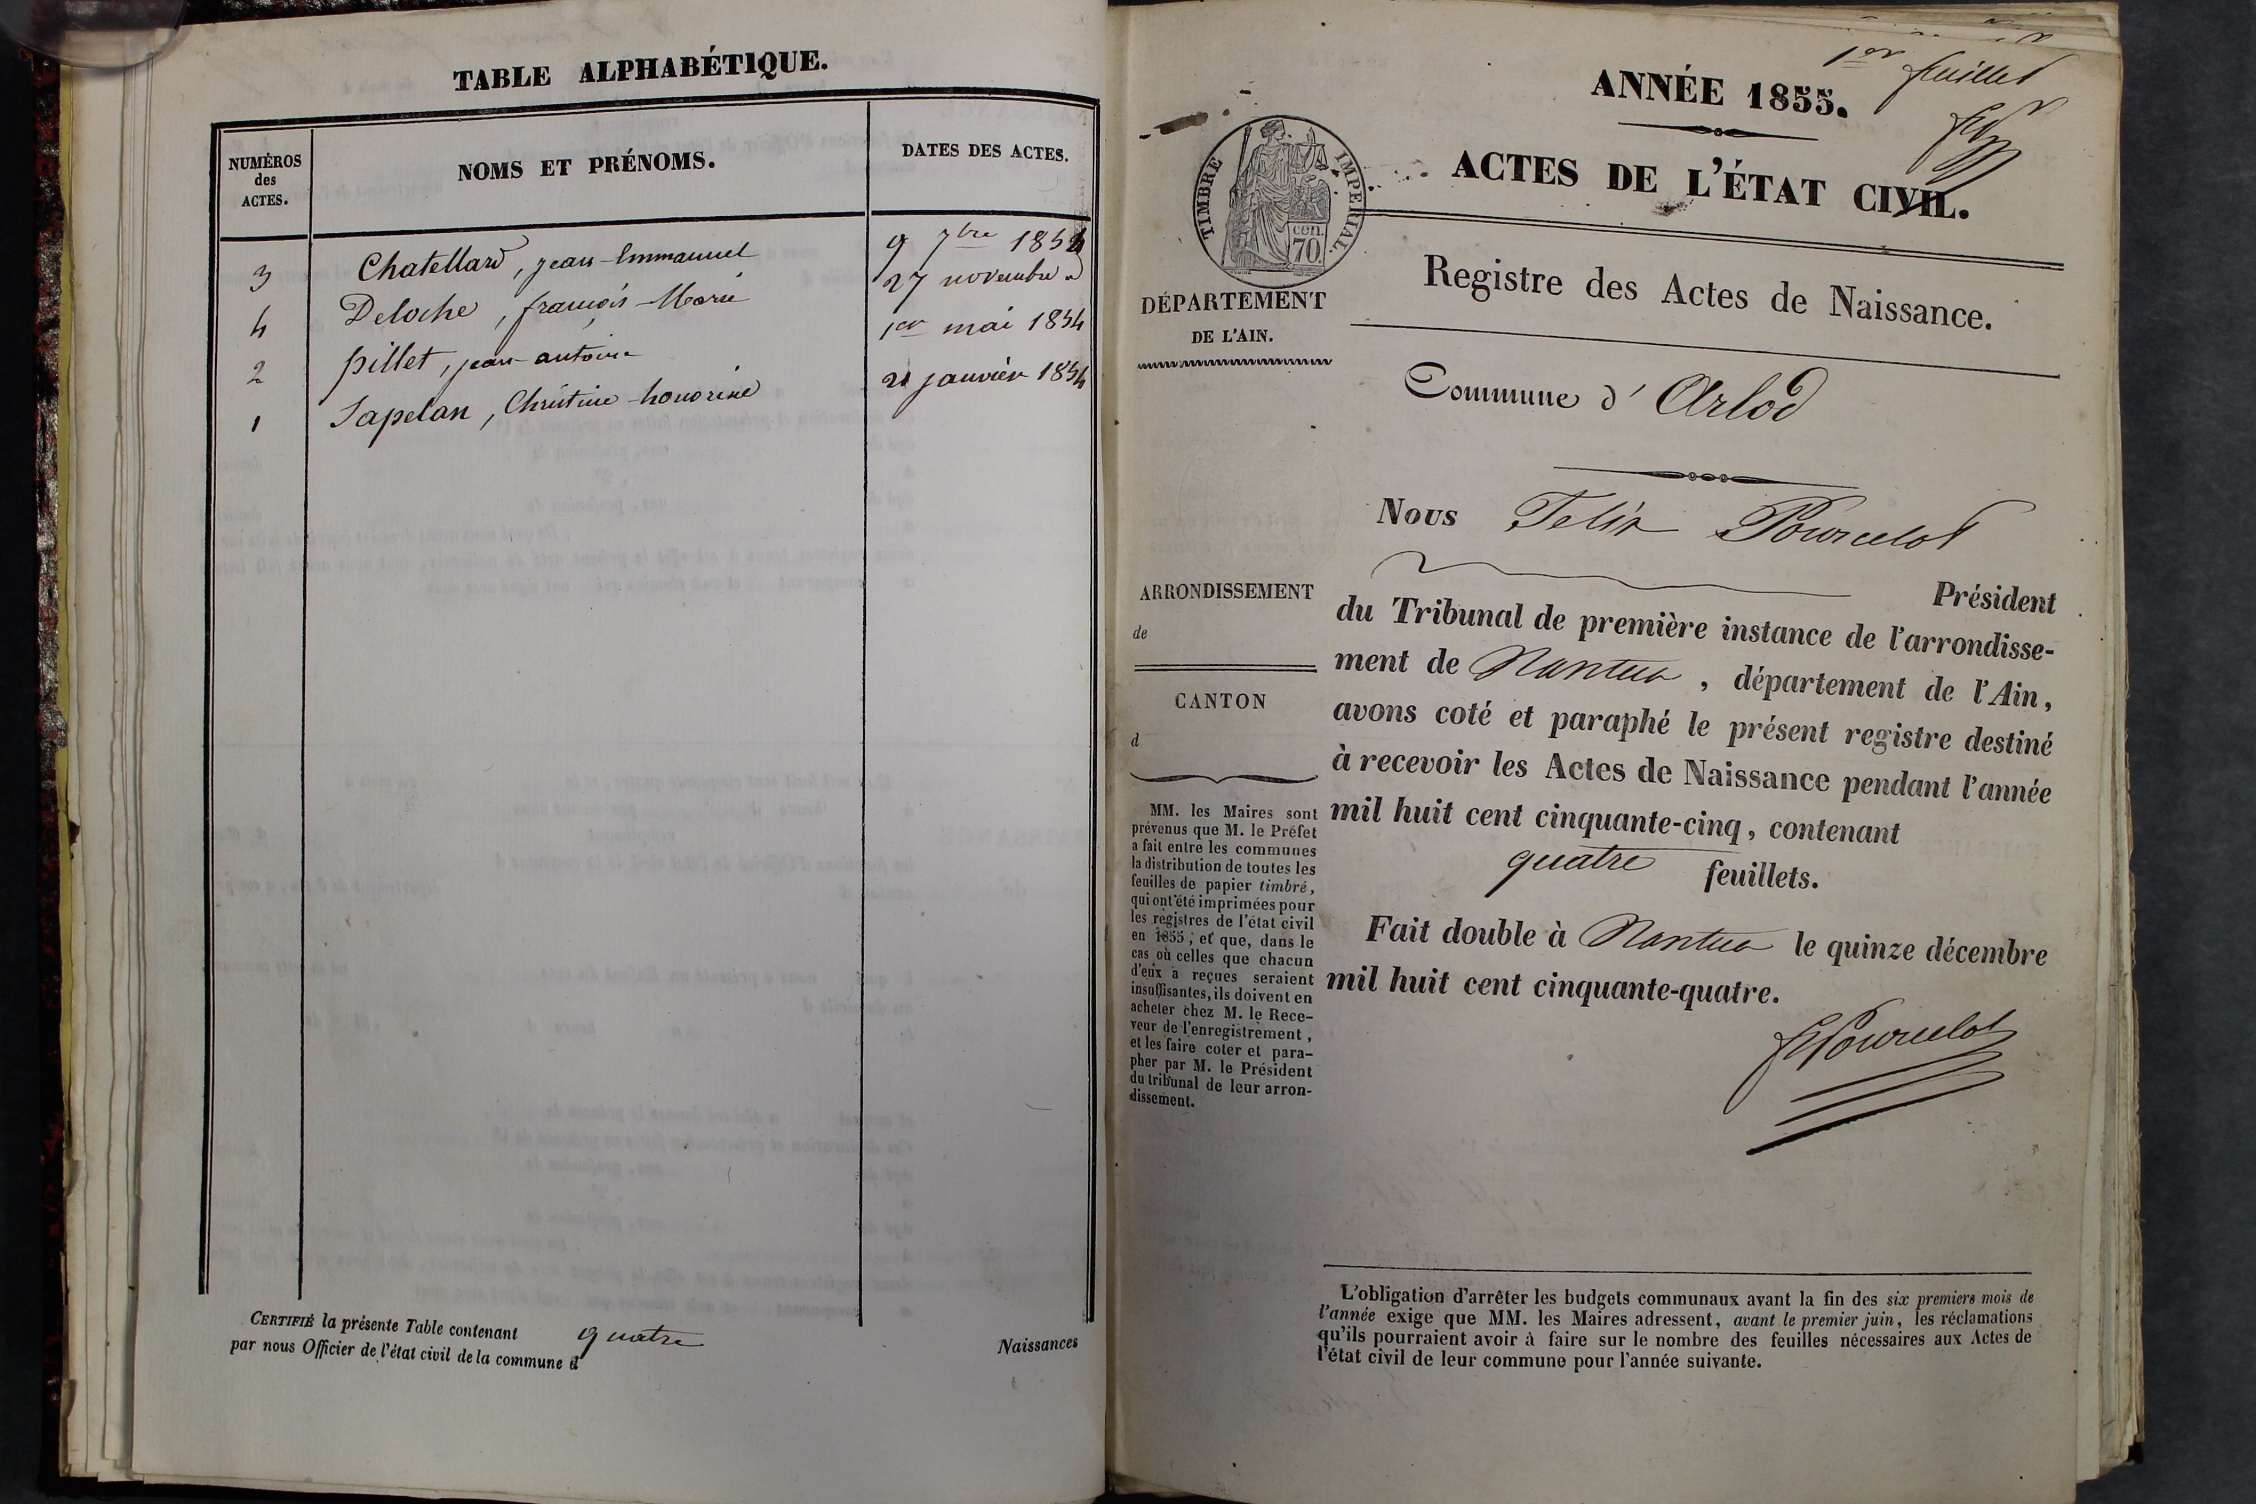 TABLE ALPHABÉTIQUE.
NUMÉROS
des
ACTES.
NOMS ET PRÉNOMS.
DATES DES ACTES.
3 Chatellard, jean-Emmanuel 9 7bre 1854
4 Deloche, françois-Marie 27 novembre d
2 pillet, jean-antoine 1er mai 1854
1 Sapelan, Christine-honorine 21 janvier 1854
CERTIFIÉ la présente Table contenant quatre Naissances
par nous Officier de l'état civil de la commune d
1er feuillet
ANNÉE 1855.
ACTES DE L'ÉTAT CIVIL.
TIMBRE IMPERIAL.
cen.
70.
DÉPARTEMENT
DE L'AIN.
Registre des Actes de Naissance.
Commune d' Arlod
Nous Felix Pourcelot
Président
du Tribunal de première instance de l'arrondisse-
ment de Nantua, département de l'Ain,
avons coté et paraphé le présent registre destiné
à recevoir les Actes de Naissance pendant l'année
mil huit cent cinquante-cinq, contenant
quatre feuillets.
Fait double à Nantua le quinze décembre
mil huit cent cinquante-quatre.
FPourcelot
ARRONDISSEMENT
de
CANTON
d
MM. les Maires sont
prévenus que M. le Préfet
a fait entre les communes
la distribution de toutes les
feuilles de papier timbré,
qui ont été imprimées pour
les registres de l'état civil
en 1855; et que, dans le
cas où celles que chacun
d'eux a reçues seraient
insuffisantes, ils doivent en
acheter chez M. le Rece-
veur de l'enregistrement,
et les faire coter et para-
pher par M. le Président
du tribunal de leur arron-
dissement.
L'obligation d'arrêter les budgets communaux avant la fin des six premiers mois de
l'année exige que MM. les Maires adressent, avant le premier juin, les réclamations
qu'ils pourraient avoir à faire sur le nombre des feuilles nécessaires aux Actes de
l'état civil de leur commune pour l'année suivante.